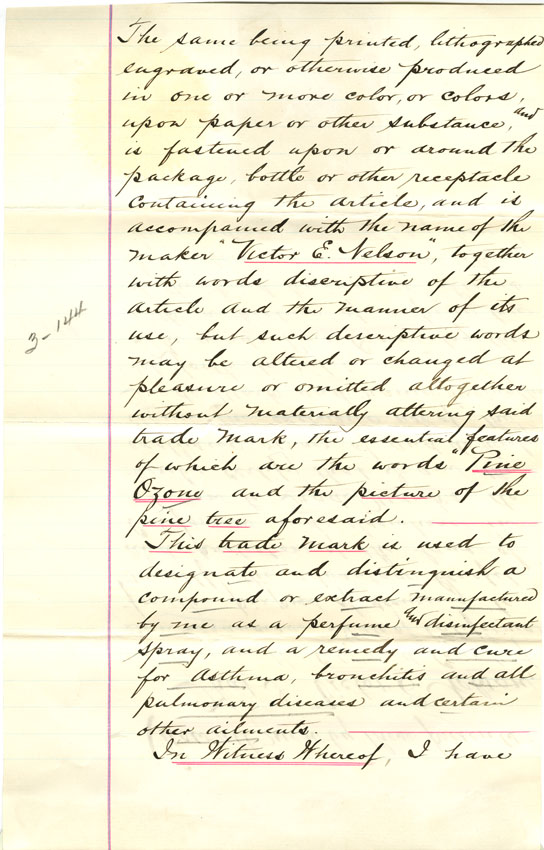 The same being printed, lithographed
engraved, or otherwise produced
in one or more color, or colors,
upon paper or other substance, and
is fastened upon or around the
package, bottle or other receptacle
containing the article, and is
accompanied with the name of the
maker "Victor E. Nelson", together
with words discriptive of the
article and the manner of its
use, but such descriptive words
3-144
may be altered or changed at
pleasure or omitted altogether
without materially altering said
trade mark, the essential features
of which are the words "Pine
Ozone and the picture of the
pine tree aforesaid.
This trade mark is used to
designate and distinguish a
compound or extract manufactured
by me as a perfume and disinfectant
spray, and a remedy and cure
for Asthma, bronchitis and all
pulmonary diseases and certain
other ailments.
In Witness Whereof, I have